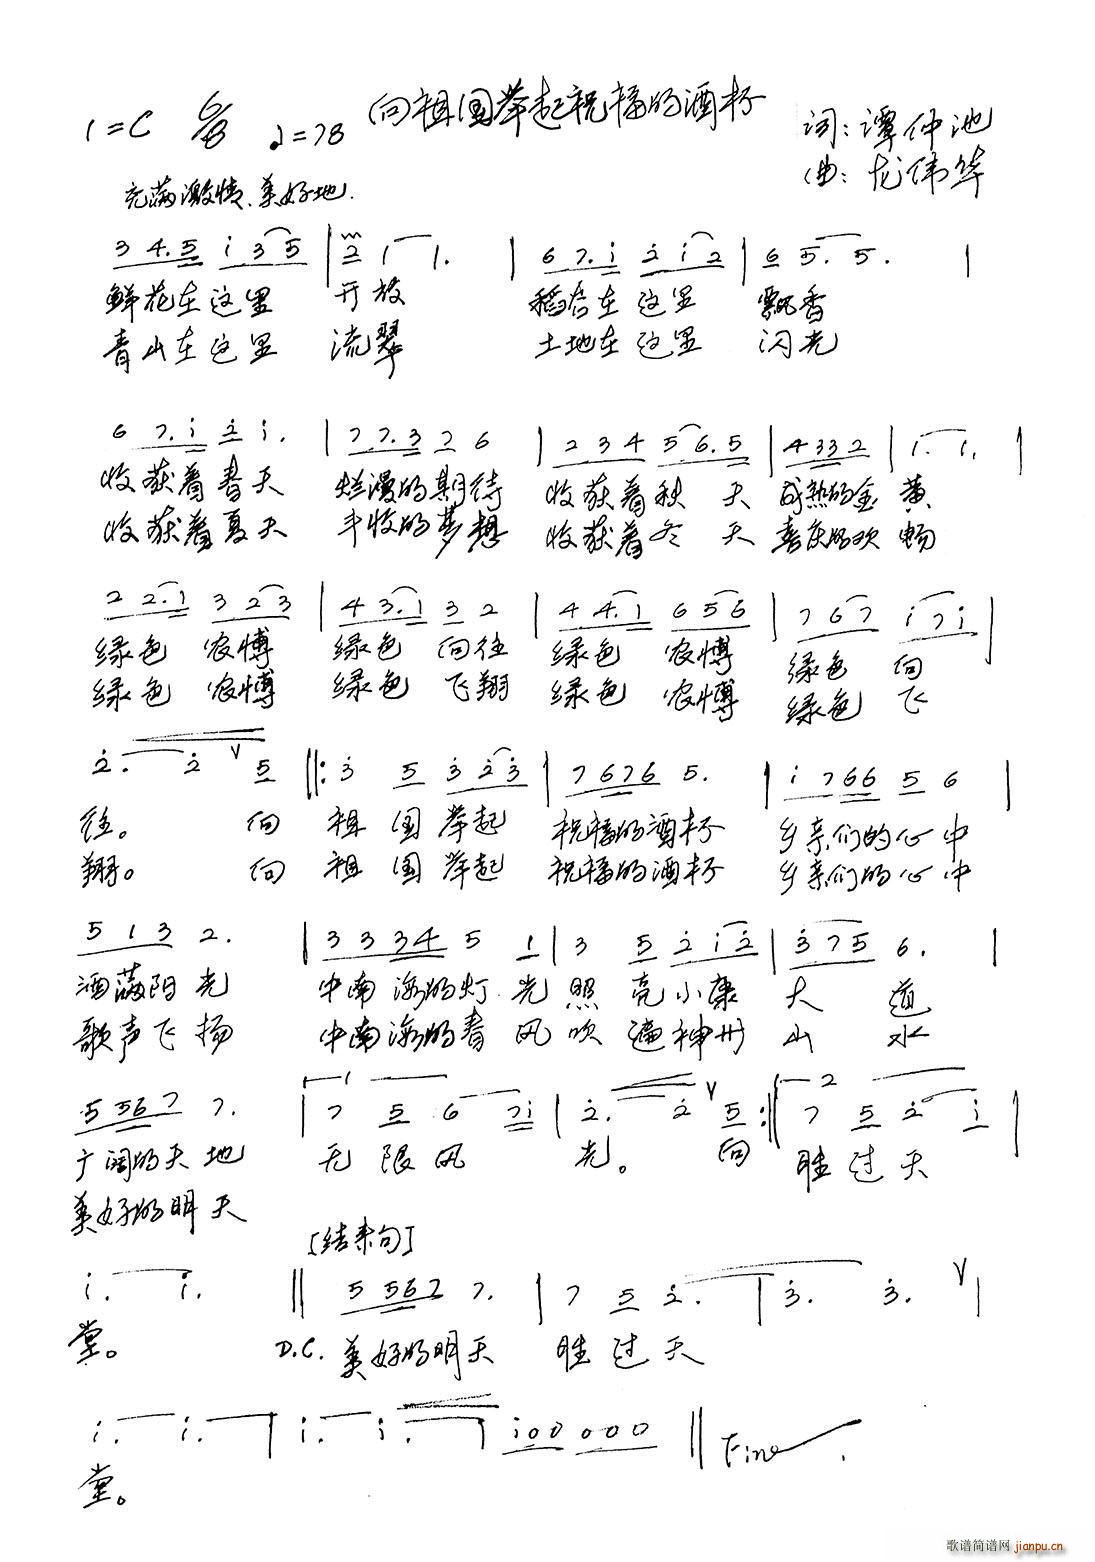 向祖国举起祝福的酒杯
1=C 6/8 ♩=78
词:谭仲池
曲:龙伟华
充满激情、美好地.
3 4.5 i 3 5 | 2 1 1. | 6 7.i 2 i 2 | 6 5. 5. |
鲜花在这里 开放 稻谷在这里 飘香
青山在这里 流翠 土地在这里 闪光
6 7.i 2 i. | 7 7.3 7 6 | 2 3 4 5.6.5 | 4 33 2 | 1. 1. |
收获着春天 烂漫的期待 收获着秋 天 成熟的金 黄
收获着夏天 丰收的梦想 收获着冬 天 喜庆的欢 畅
2 2.1 3 2 3 | 4 3.1 3 2 | 4 4.1 6 5 6 | 7 6 7 i 7 i |
绿色 农博 绿色 向往 绿色 农博 绿色 向
绿色 农博 绿色 飞翔 绿色 农博 绿色 飞
2. 2 V 5 ‖: 3 5 3 2 3 | 7 6 7 6 5. | i 7 6 6 5 6 |
往。 向 祖 国 举起 祝福的酒杯 乡亲们的心中
翔。 向 祖 国 举起 祝福的酒杯 乡亲们的心中
5 1 3 2. | 3 3 3 4 5 1 | 3 5 2 i 2 | 3 7 5 6. |
洒满阳 光 中南海的灯 光 照 亮小康 大 道
歌声飞 扬 中南海的春 风 吹 遍神州 山 水
5 5 6 7 7. | 1 7 5 6 7 i | 2. 2 V 5 :‖ 2 7 5 2 i |
广阔的天地 无 限 风 光。 向 胜 过 天
美好的明天
[结束句]
i. i. ‖ 5 5 6 7 7. | 7 5 2. | 3. 3. V |
堂。 D.C. 美好的明天 胜 过 天
i. i. | i. i. | i 0 0 0 0 0 ‖ Fine.
堂。
歌谱简谱网 jianpu.cn